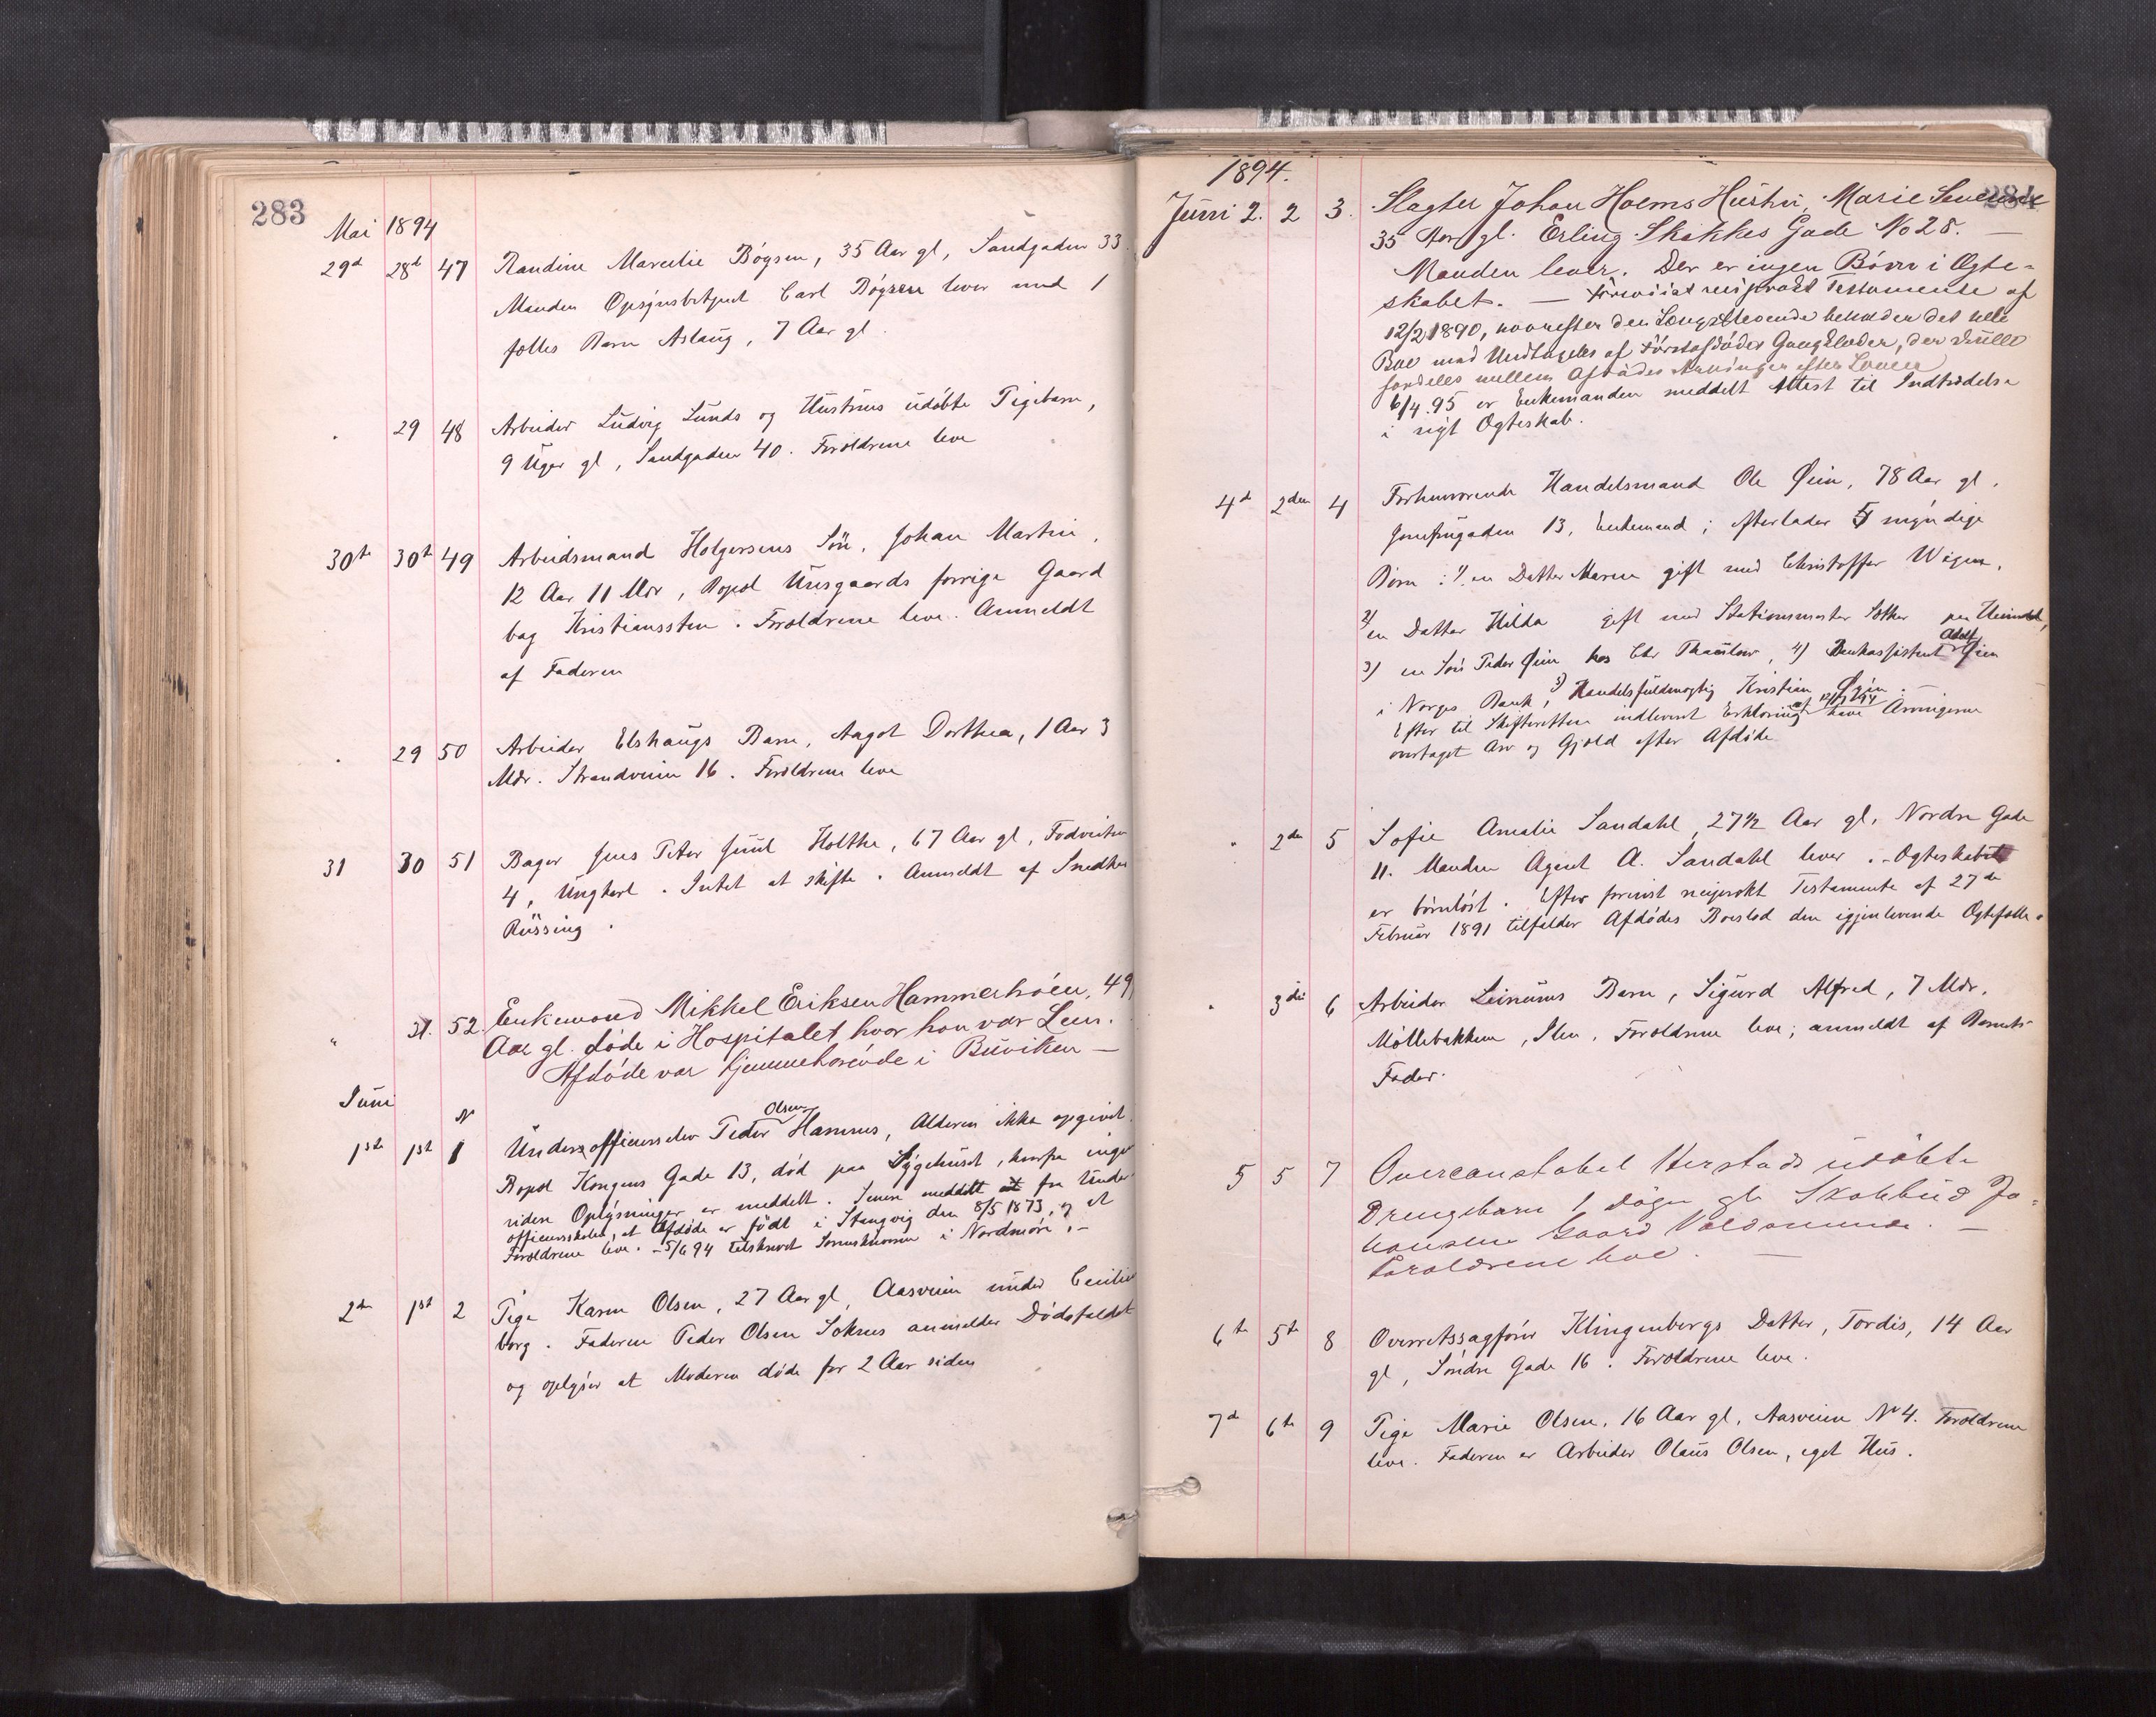 283
Mai 1894
29d 28d 47 Randine Marcelie Bøysen, 35 Aar gl, Sandgaden 33.
Manden Opsynsbetjent Carl Bøysen lever med 1
fælles Barn Aslaug, 7 Aar gl.
. 29 48 Arbeider Ludvig Lunds og Hustrus udøbte Pigebarn,
9 Uger gl, Sandgaden 40. Forældrene leve
30te 30te 49 Arbeidsmand Holgersens Søn, Johan Martin,
12 Aar 11 Mdr, Bopæl Uusgaards forrige Gaard
bag Kristianssten. Forældrene leve. Anmeldt
af Faderen
. 29 50 Arbeider Elshaugs Barn, Aagot Dorthea, 1 Aar 3
Mdr. Strandveien 16. Forældrene leve
31 30 51 Bager Jens Peter Juul Holthe, 67 Aar gl,
4, Ungkarl. Intet at skifte. Anmeldt af Snedker
Rüssing.
" 31. 52. Enkemand Mikkel Eriksen Hammerhøen, 49
Aar gl. døde i Hospitalet, hvor han var Lem.
Afdøde var hjemmehørende i Buviken —
Juni
N
Olsen
1ste 1ste 1 Underofficerselev Peder Hamnes, Alderen ikke opgivet.
Bopæl Kongens Gade 13, død paa Sygehuset, hvorfra ingen
videre Oplysninger er meddelt. Senere meddelt at fra Under-
officersskolen, at Afdøde er født i Stangvig den 8/5 1873, og at
Forældrene leve. - 5/6 94 tilskrevet Sorenskriveren i Nordmøre.-
2den 1ste 2 Pige Karen Olsen, 27 Aar gl, Aasveien under Cecilien
borg. Faderen Peder Olsen Soknes anmelder Dødsfaldet
og oplyser at Moderen døde for 2 Aar siden
284
1894.
Juni 2. 2 3. Slagter Johan Holms Hustru, Marie Severine
35 Aar gl. Erling Skakkes Gade No 28. —
Manden lever. Der er ingen Børn i Ægte-
skabet. — Foreviist resiprokt Testamente af
12/2 1890, hvorefter den Længstlevende beholder det hele
Boe med Undtagelse af Førstafdødes Gangklæder, der skulle
fordeles mellem Afdødes Arvinger efter Loven
6/4.95 er Enkemanden meddelt Attest til Indtrædelse
i nyt Ægteskab.
4de 2den 4 Forhenværende Handelsmand Ole Øien, 78 Aar gl.
Jomfrugaden 13, Enkemand; efterlader 5 myndige
Børn: 1/ en Datter Maren gift med Christoffer Wigen,
2/ en Datter Hilda gift med Stationsmester Sæther paa Heimdal,
3) en Søn Peder Øien hos Chr Thaulow, 4) Bankassistent Adolf Øien
i Norges Bank, 5) Handelsfuldmægtig Kristian Øien. —
Efter til Skifteretten indleveret Erklæring af 12/7 1894 have Arvingerne
overtaget Arv og Gjæld efter Afdøde
. 2den 5 Sofie Amalie Sandahl, 27½ Aar gl, Nordre Gade
11. Manden Agent A. Sandahl lever. - Ægteskabet
er børnløst. Efter forevist reciprokt Testamente af 27de
Februar 1891 tilfalder Afdødes Boeslod den igjenlevende Ægtefælle.
. 3die 6 Arbeider Leinums Barn, Sigurd Alfred, 7 Mdr.
Møllebakken, Ilen. Forældrene leve; anmeldt af Barnets
Fader.
5 5 7 Overconstabel Herstads udøbte
Drengebarn 1 Døgn gl. Skolebud Jo-
hansens Gaard Voldsminde. —
Forældrene leve. —
6te 5te 8 Overretssagfører Klingenbergs Datter, Tordis, 14 Aar
gl, Søndre Gade 16. Forældrene leve.
7de 6te 9 Pige Marie Olsen, 16 Aar gl, Aasveien No 4. Forældrene
leve. Faderen er Arbeider Olaus Olsen, eget Hus.